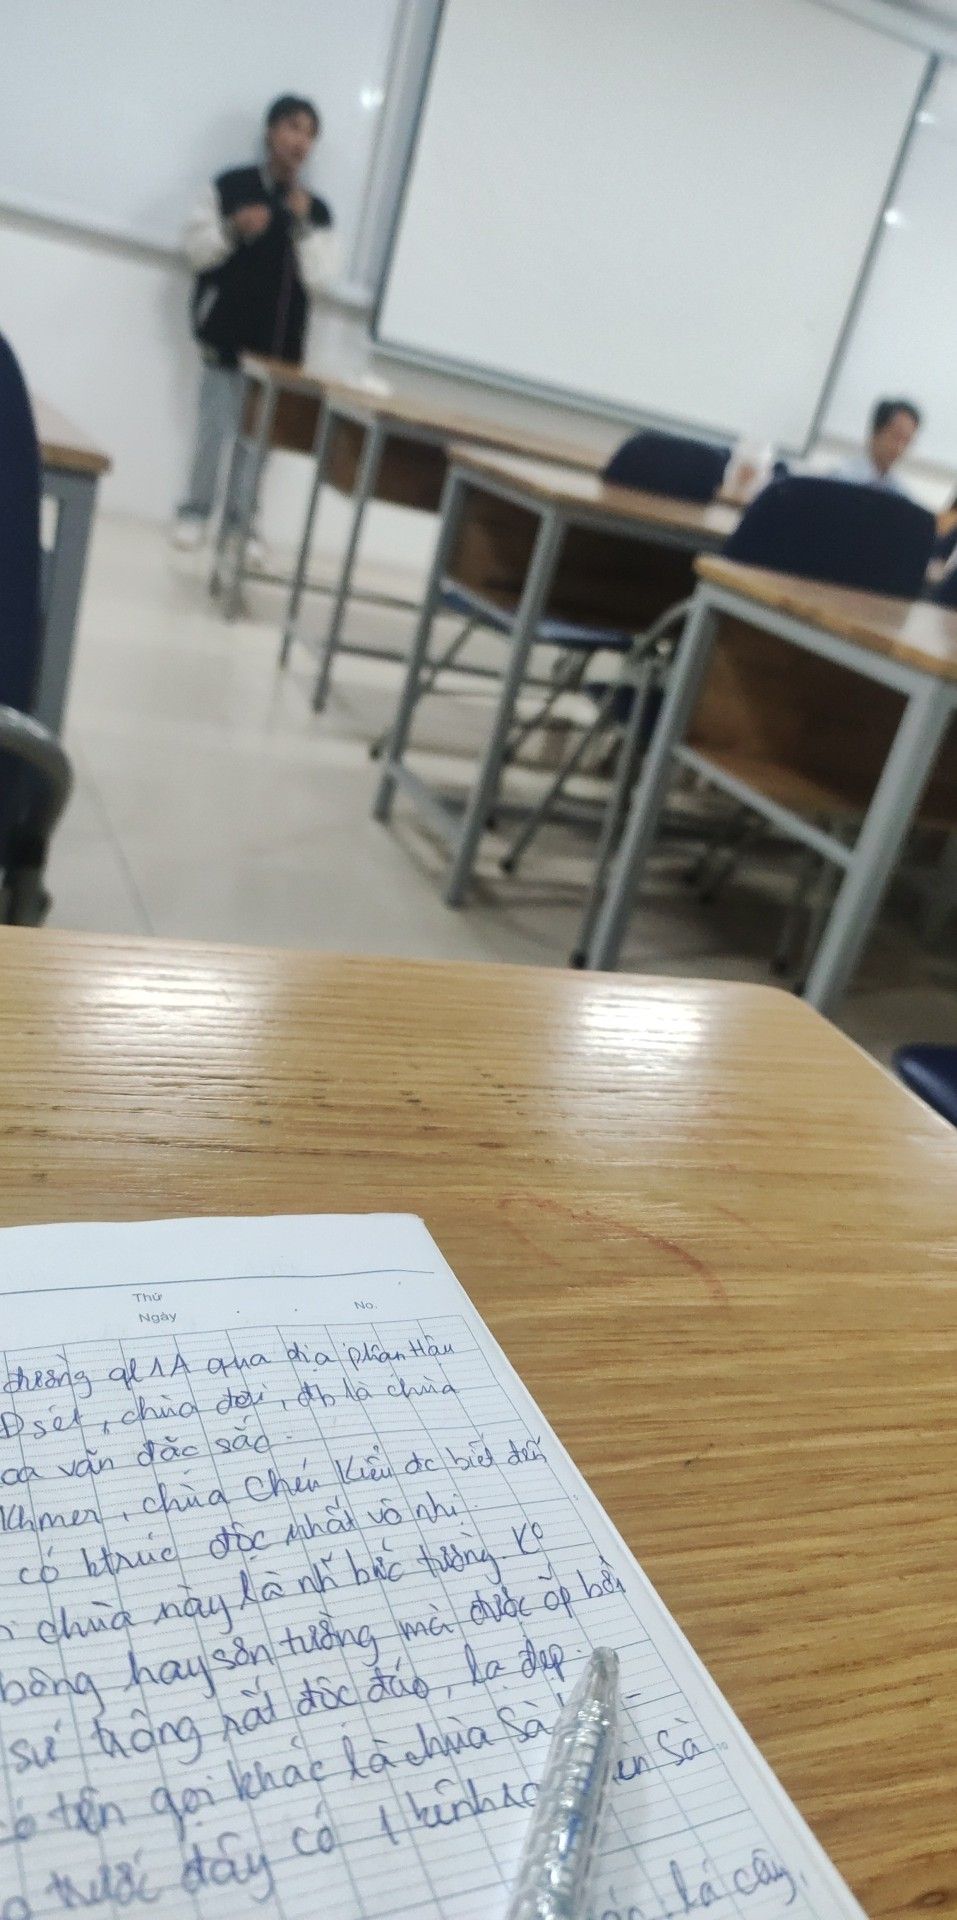 Thứ
Ngày
No.
đường ql 1A qua địa phận Hậu
Đ sét, chùa dơi, đb là chùa
văn đặc sắc.
Khmer, chùa Chén Kiểu đc biết đến
có ktrúc độc nhất vô nhị.
chùa này là nh bức tường ko
bông hay sơn tường mà được ốp bởi
sứ trông rất độc đáo, lạ đẹp.
tên gọi khác là chùa Sà
trước đây có 1 kênh Sà
lá cây,